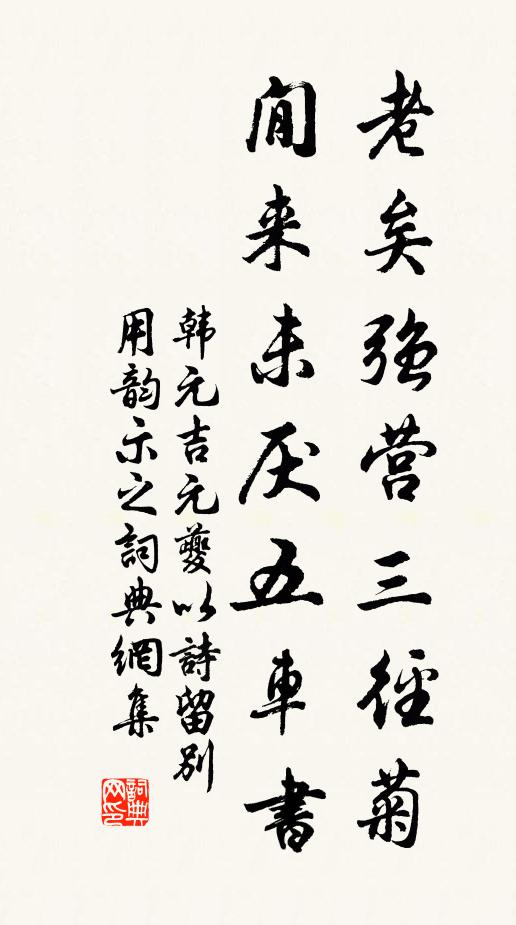 老矣强营三径菊
闲来未厌五車書
韩元吉元夔以詩留别
用韵示之詞典網集
詞典
网印